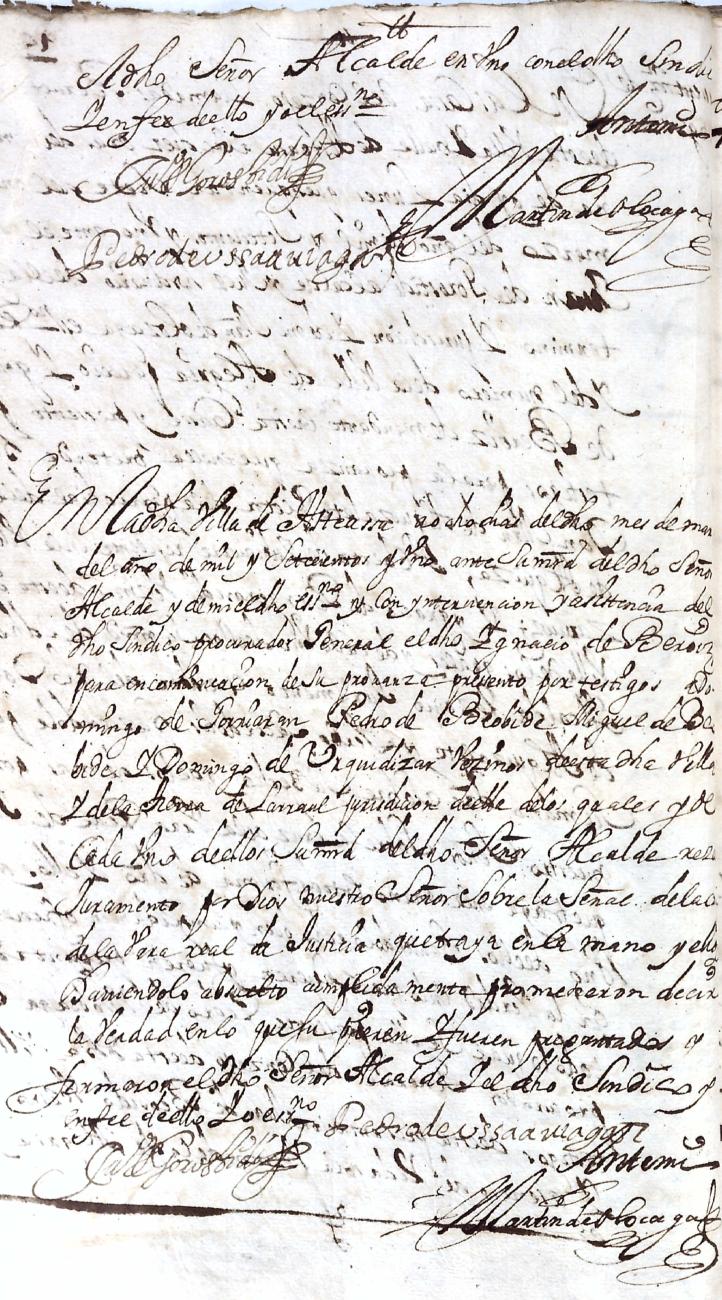 dho Señor Alcalde en Vno con el dho Sindi
Y en fee de ello yo el essno
Antemi
Martin de
Pedro de ussauiaga
En la dha Villa de Asteasu a ocho dias del dho mes de mar
del año de mil y Setecientos y Vno ante Su mrd del dho Señor
Alcalde y de mi el dho essno y Con yntervencion y assistencia del
dho Sindico procurador General el dho Ygnacio de
para en continuacion de su prouanza presento por testigos a Do
mingo de Pedro de Beobide Miguel de Be
bide Y Domingo de Urquidizar Vezinos de esta dha Villa
Y de la de Larraul jurisdicion de ella de los quales y de
Cada Vno de ellos Su mrd del dho Señor Alcalde reci
Juramento por Dios nuestro Señor Sobre la Señal de la
de la Vara real de Justicia que traya en la mano y ellos
hauiendolo absuelto cumplidamente prometieron decir
la Verdad en lo que su pieren Y fueren preguntados y
firmaron el dho Señor Alcalde Y el dho Sindico y
en fee de ello Yo essno
Pedro de ussauiaga
Antemi
Martin de